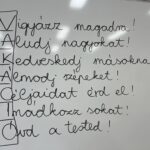 Vigyázz magadra!
Aludj nagyokat!
Kedveskedj másoknak
Álmodj szépeket!
Céljaidat érd el!
Imádkozz sokat!
Óvd a tested!